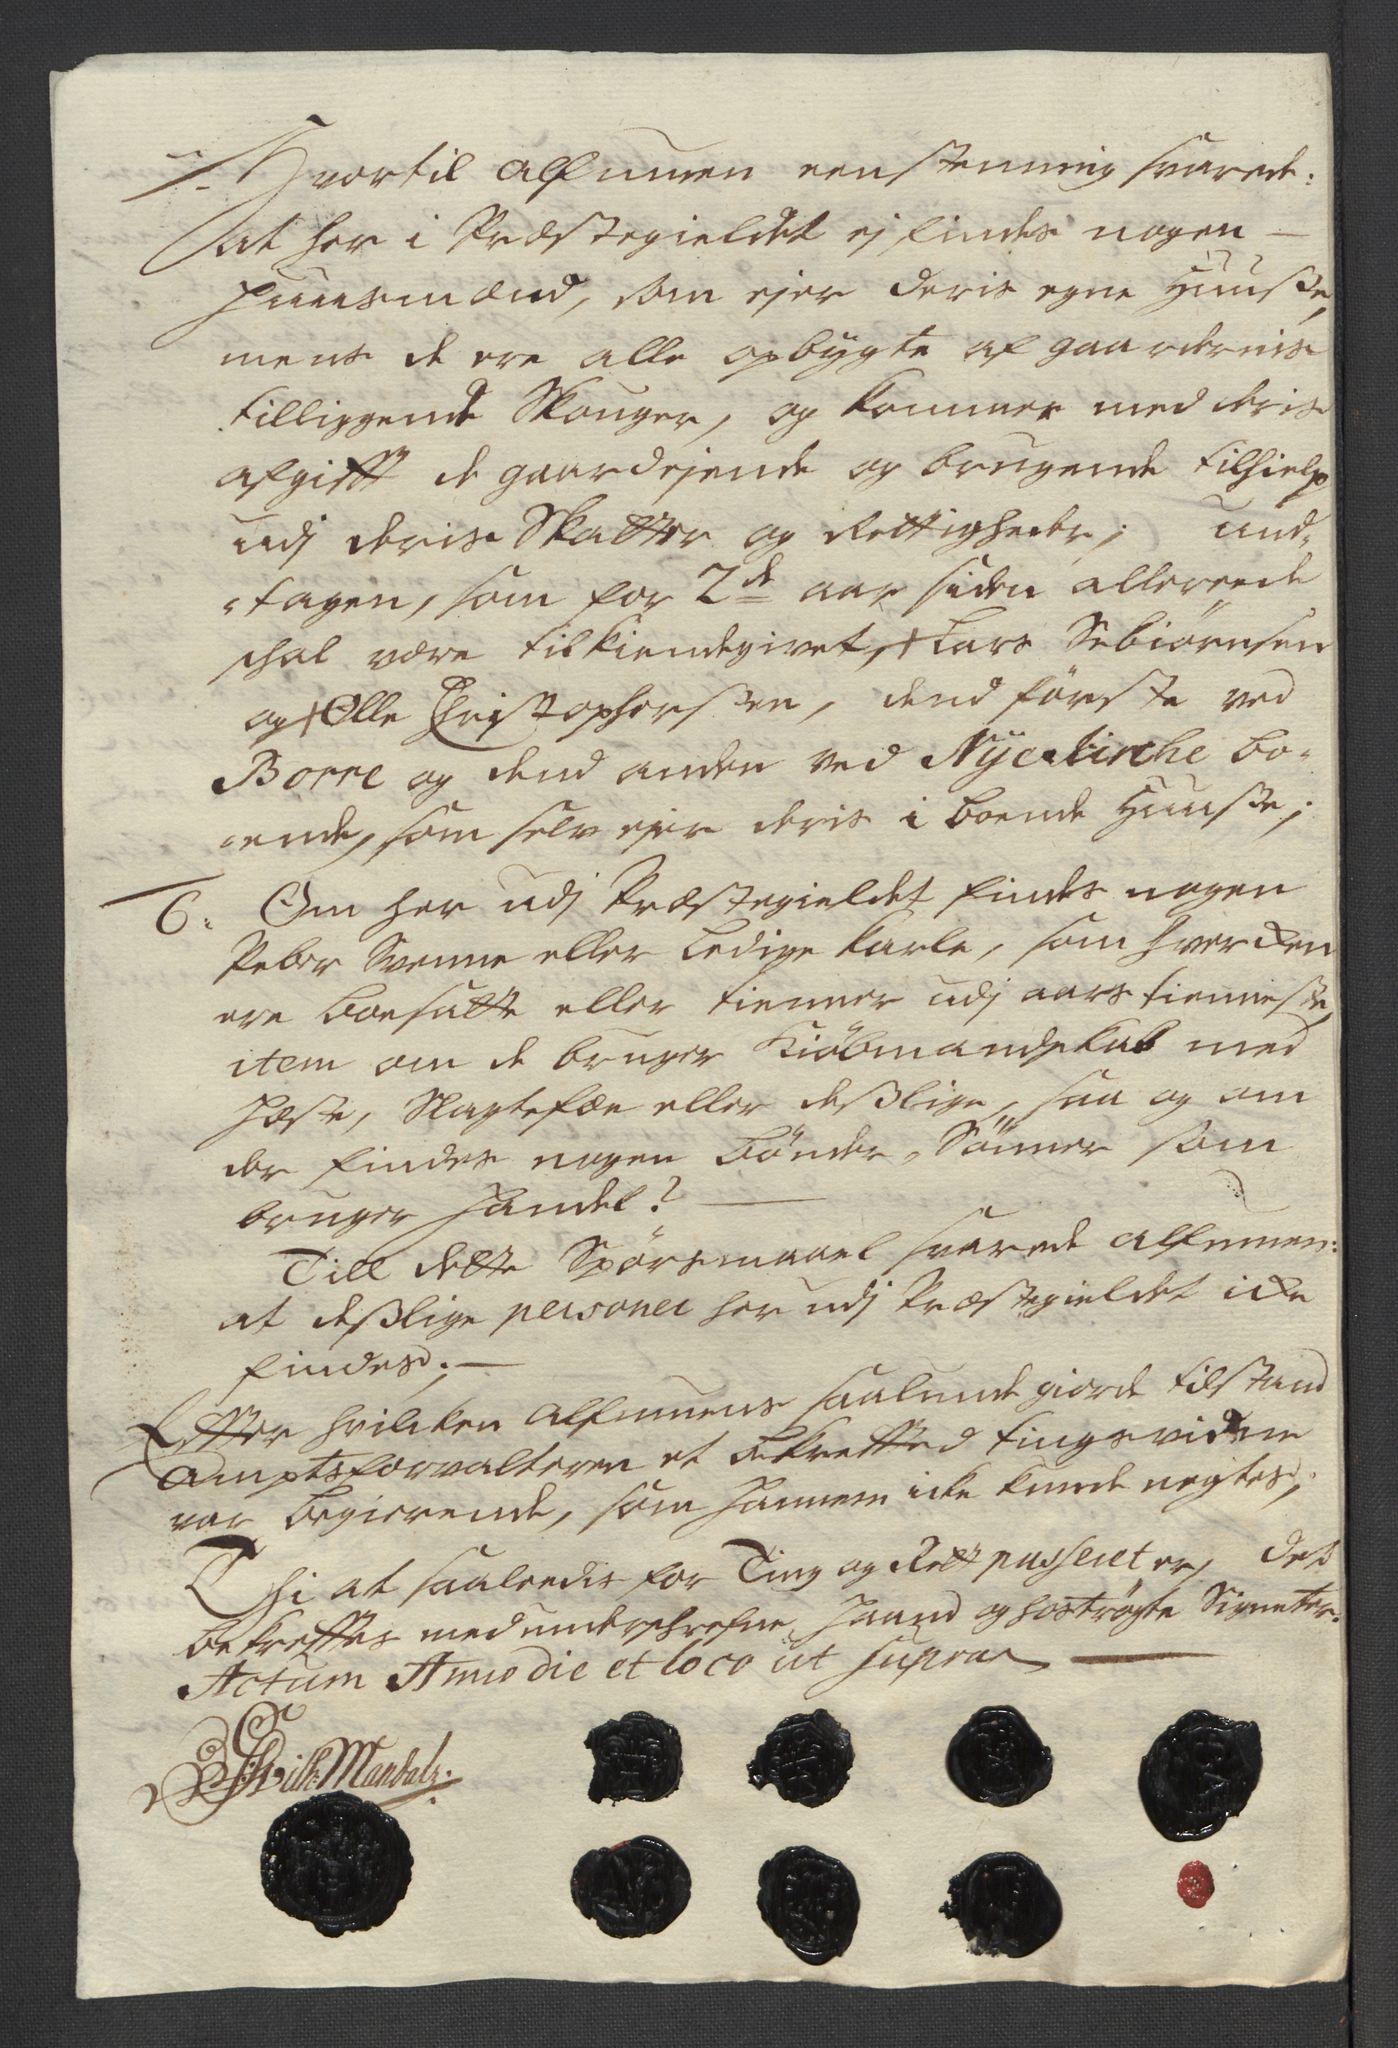 Hvortil Alfuuen eenstemmig svarede:
at her i Præstegieldet ej findes nogen —
Huusmænd, som ejer deris egne Huuse,
mens de ere alle opbygte af gaardernis
tilliggende Skouger, og kommer med deris
afgifft de gaardejende og brugende tilhielp
udj deris Skatter og Rettigheder; und-
tagen, som for 2de aar siden allereede
schal være tilkiendegivet, Lars Sebiørnsen
og Olle Christophersen, dend første ved
Borre og dend anden ved Nyekirche bo-
ende, som selv ejer deris i boende Huuse;
6. Om her udj Præstegieldet findes nogen
Peber Svenne eller Ledige Karle, som hvercken
ere boesatte eller tienner udj aars tienneste,
item om de bruger Kiøbmandskab med
Heste, Slagtefæe eller deslige, saa og om
der findes nogen Bønder-Sønner som
bruger Handel? —
Till dette Spørsmaael svarede Alfuuen:
at deslige personer her udj Præstegieldet icke
findes; —
Effter hvilcken Alfuuens saalunde giorde tilstand
Amptsforvalteren et bekreffted tingsvidne
var begierende, som hannem icke kunde negtes;
Thi at saaleedis for Ting og Rett passeret er, det
bekrefftes med underschrefne Haand og hostrøgte Signeter.
Actum Anno die et loco ut supra —
Mandalz.